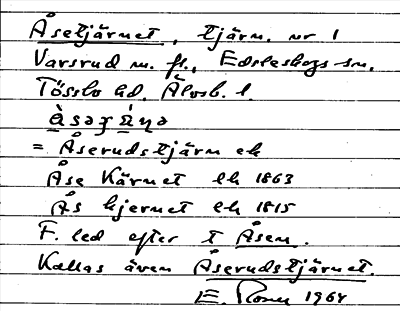 Åsetjärnet, tjärn. nr 1
Varsrud m. fl., Edsleskogs sn,
Tössbo hd, Älvsb. l.
= Åserudstjärn ek
Åse Kärnet lk 1863
Ås kjernet ek 1815
F. led efter t Åsen.
Kallas även Åserudstjärnet.
E. 1964